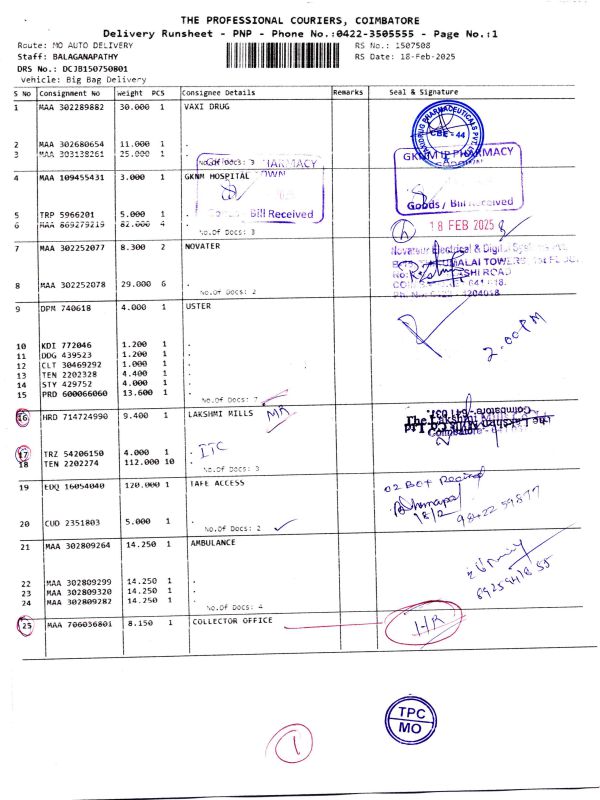 THE PROFESSIONAL COURIERS, COIMBATORE
Delivery Runsheet - PNP - Phone No.:0422-3505555 - Page No.:1
Route: MO AUTO DELIVERY RS No.: 1507508
Staff: BALAGANAPATHY RS Date: 18-Feb-2025
DRS No.: DCJB150750801
Vehicle: Big Bag Delivery
S No Consignment No Weight PCS Consignee Details Remarks Seal & Signature
1 MAA 302289882 30.000 1 VAXI DRUG
CBE - 44
2 MAA 302680654 11.000 1 .
3 MAA 303138261 25.000 1 .
No.Of Docs: 3
GKNM IP PHARMACY
4 MAA 109455431 3.000 1 GKNM HOSPITAL
Goods / Bill Received
Goods / Bill Received
5 TRP 5966201 5.000 1 .
6 MAA 869279219 82.000 4 .
No.Of Docs: 3
18 FEB 2025
7 MAA 302252077 8.300 2 NOVATER
8 MAA 302252078 29.000 6 .
No.Of Docs: 2
9 DPM 740618 4.000 1 USTER
2.00 PM
10 KDI 772046 1.200 1 .
11 DDG 439523 1.200 1 .
12 CLT 30469292 1.000 1 .
13 TEN 2202328 4.400 1 .
14 STY 429752 4.000 1 .
15 PRD 600066060 13.600 1 .
No.Of Docs: 7
16 HRD 714724990 9.400 1 LAKSHMI MILLS MR
17 TRZ 54206150 4.000 1 . ITC
18 TEN 2202274 112.000 10 .
No.Of Docs: 3
19 EDQ 16054040 120.000 1 TAFE ACCESS
02 Box
18/2
20 CUD 2351803 5.000 1 .
No.Of Docs: 2
21 MAA 302809264 14.250 1 AMBULANCE
22 MAA 302809299 14.250 1 .
23 MAA 302809320 14.250 1 .
24 MAA 302809282 14.250 1 .
No.Of Docs: 4
25 MAA 706036801 8.150 1 COLLECTOR OFFICE HR
TPC
MO
1